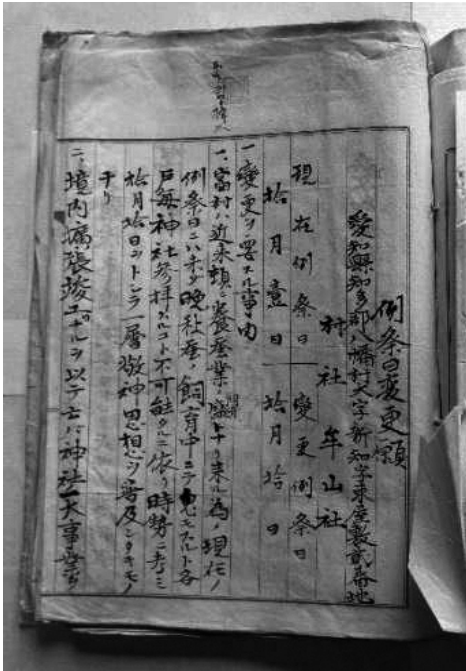 例祭日変更願
愛知縣知多郡八幡村大字新知字東屋敷貳番地
村社 牟山社
現在例祭日 変更例祭日
拾月壹日 拾月拾日
一 変更ヲ要スル事由
一、當村ハ近来頻ニ養蚕業ノ盛トナリ来ル為ノ現在ノ
例祭日ニハ未タ晩秋蚕ノ飼育中ニテ スルト各
戸毎神社参拝スルコト不可能タルニ依リ時勢ニ考ミ
拾月拾日ヲトシテ一層敬神思想ヲ普及シタキモノ
ナリ
二、境内 張竣工シタルヲ以テ 神社一大事業ヲ